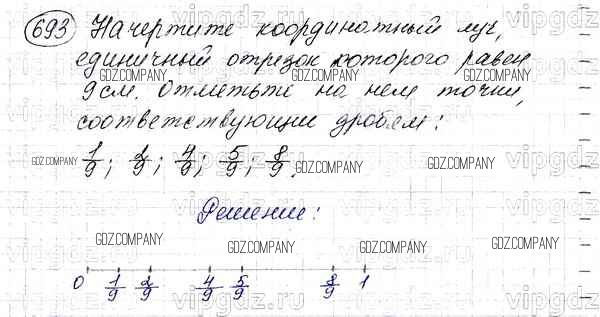 693 Начертите координатный луч,
единичный отрезок которого равен
9см. Отметьте на нем точки,
соответствующие дробям:
1/9; 2/9; 4/9; 5/9; 8/9.
Решение:
0 1/9 2/9 4/9 5/9 8/9 1
GDZ.COMPANY
GDZ.COMPANY
GDZ.COMPANY
GDZ.COMPANY
GDZ.COMPANY
GDZ.COMPANY
GDZ.COMPANY
GDZ.COMPANY
GDZ.COMPANY
GDZ.COMPANY
vipgdz.ru
vipgdz.ru
vipgdz.ru
vipgdz.ru